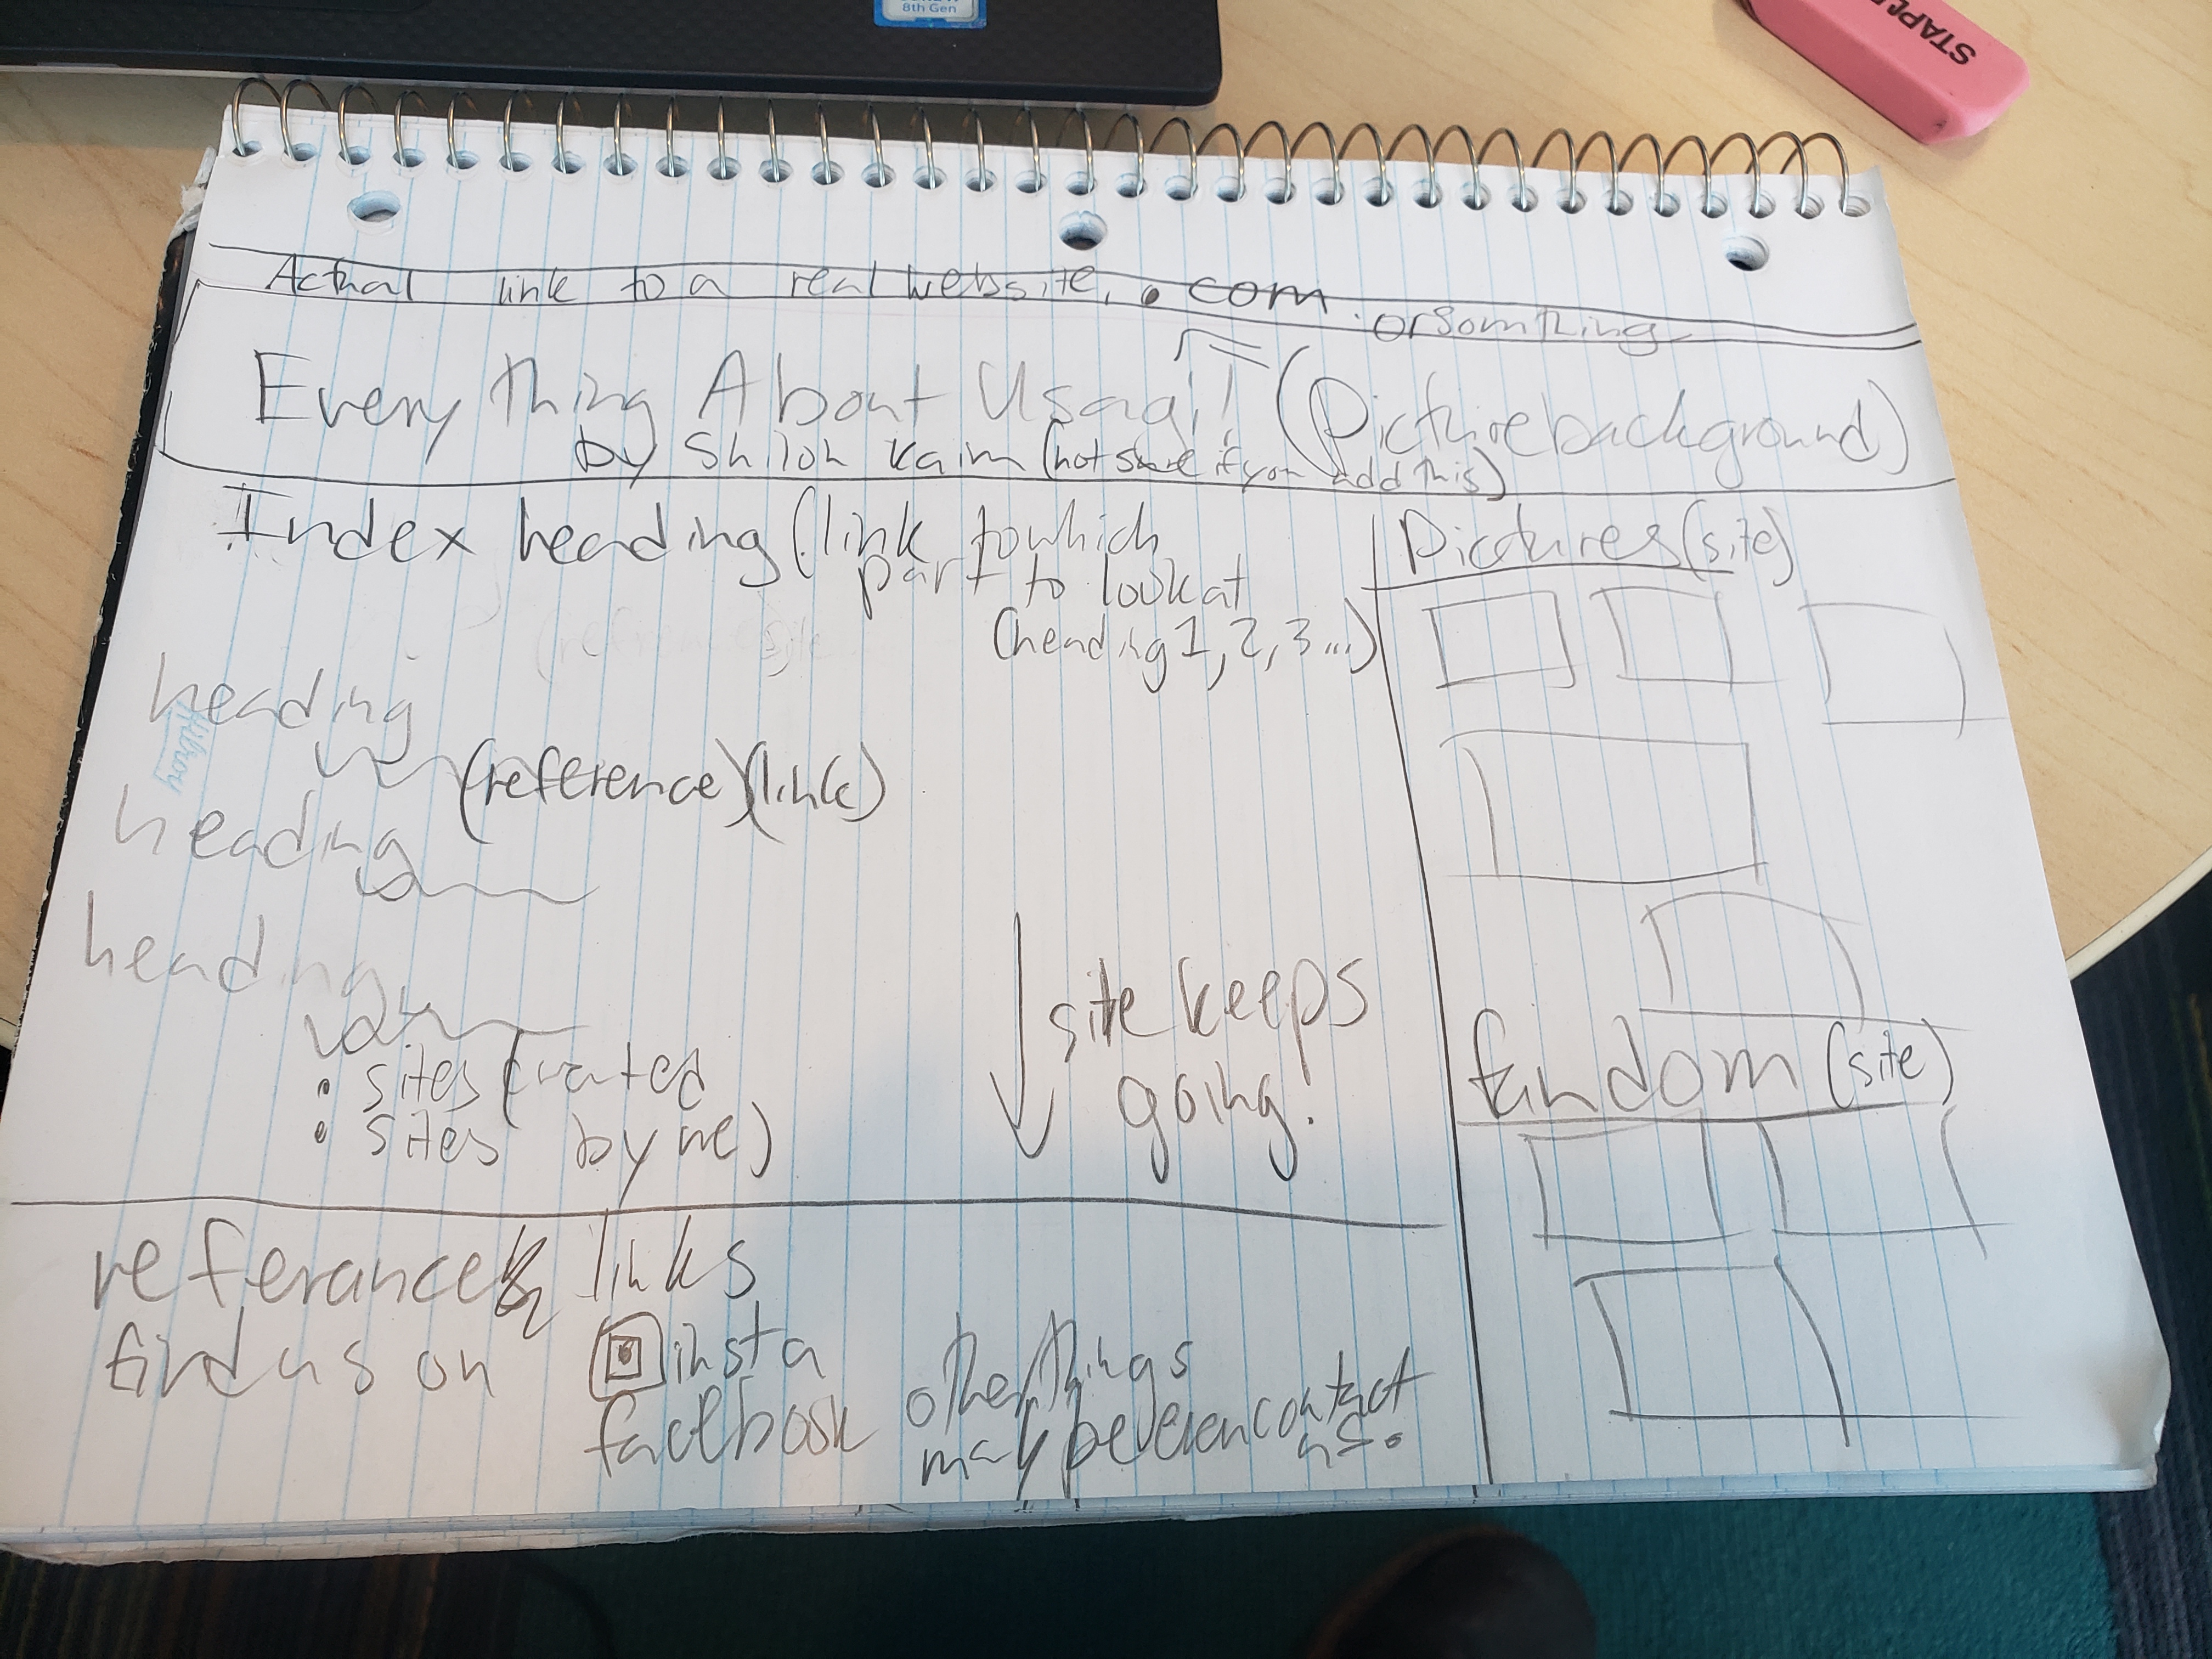 8th Gen
STAPLE
Actual link to a real website. .com.orsomthing
Everything About Usagi!! (Picture background)
by Shiloh Kaim (not sure if you add this)
Index heading (link to which
part to look at
(heading 1, 2, 3 ...)
heading
(reference)(link)
heading
heading
• sites (created
• sites by me)
site keeps
going!
Pictures (site)
fandom (site)
referance links
find us on insta
facebook
other things
maybe even contact
us.
Hilroy